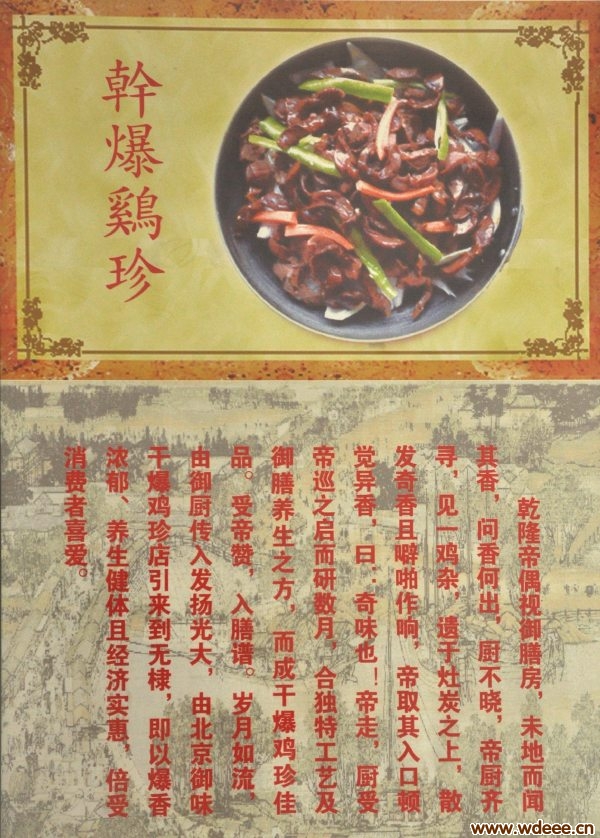 幹爆鷄珍
乾隆帝偶视御膳房，未地而闻
其香，问香何出，厨不晓，帝厨齐
寻，见一鸡杂，遗于灶炭之上，散
发奇香且噼啪作响，帝取其入口顿
觉异香，曰：奇味也！帝走，厨受
帝巡之启而研数月，合独特工艺及
御膳养生之方，而成干爆鸡珍佳
品。受帝赞，入膳谱。岁月如流，
由御厨传入发扬光大，由北京御味
干爆鸡珍店引来到无棣，即以爆香
浓郁、养生健体且经济实惠，倍受
消费者喜爱。
www.wdeee.cn